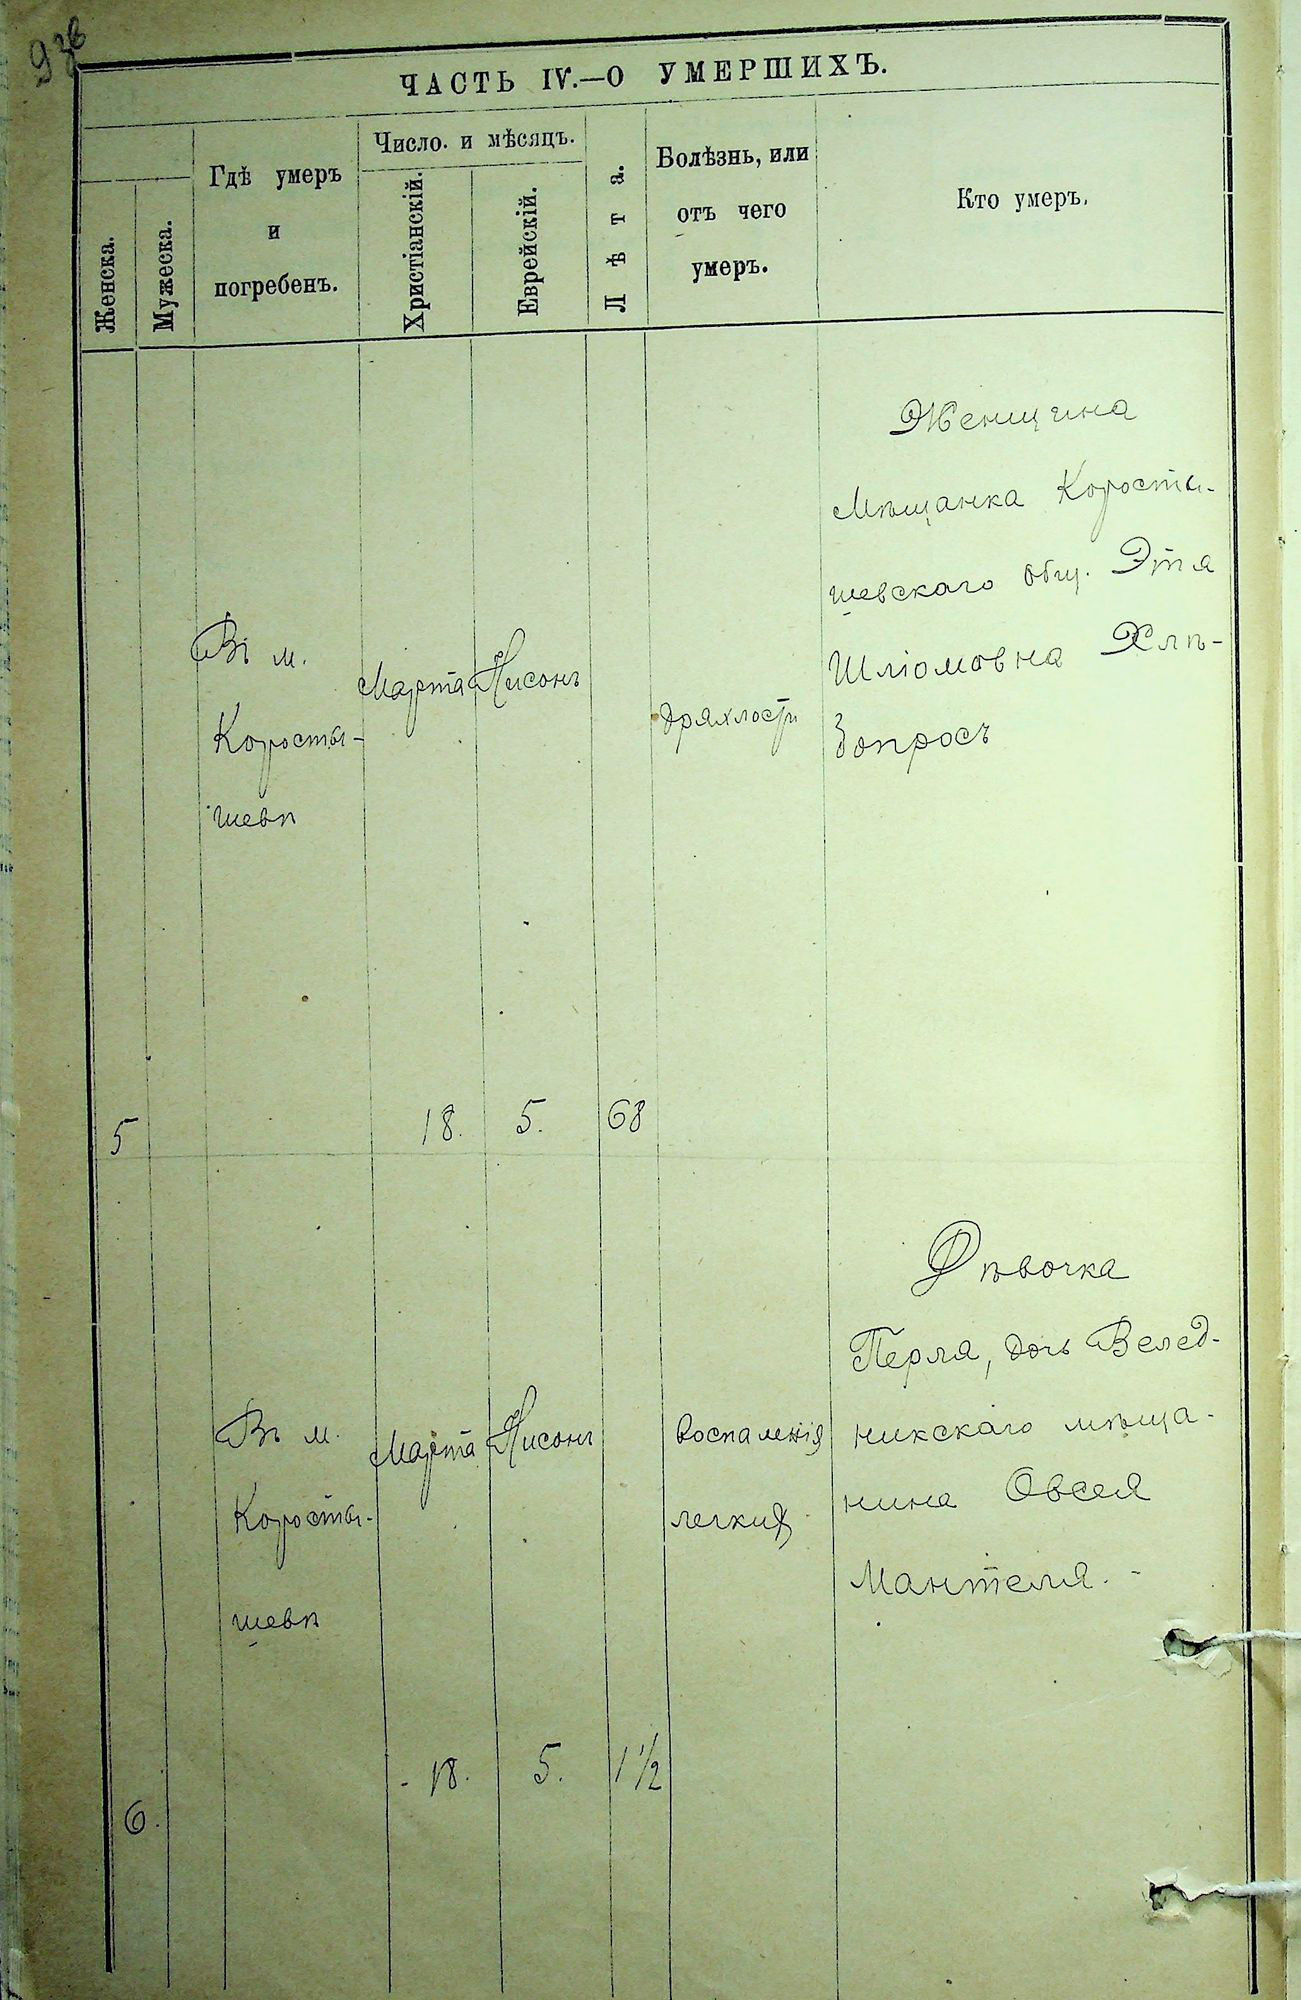 93б
ЧАСТЬ IV.—О УМЕРШИХЪ.
Женска.
Мужеска.
Гдѣ умеръ
и
погребенъ.
Число. и мѣсяцъ.
Христіанскій.
Еврейскій.
Лѣта.
Болѣзнь, или
отъ чего
умеръ.
Кто умеръ.
5
Въ м.
Коросты-
шевѣ
Марта
18.
Нисонъ
5.
68
дряхлости
Женщина
Мѣщанка Корости-
шевскаго общ. Этя
Шліомовна Хлѣ-
бопросъ
6.
Въ м.
Коросты-
шевѣ
Марта
18.
Нисонъ
5.
1 1/2
воспаленія
легкихъ
Дѣвочка
Перля, дочь Велед-
никскаго мѣща-
нина Овсея
Мантеля.-